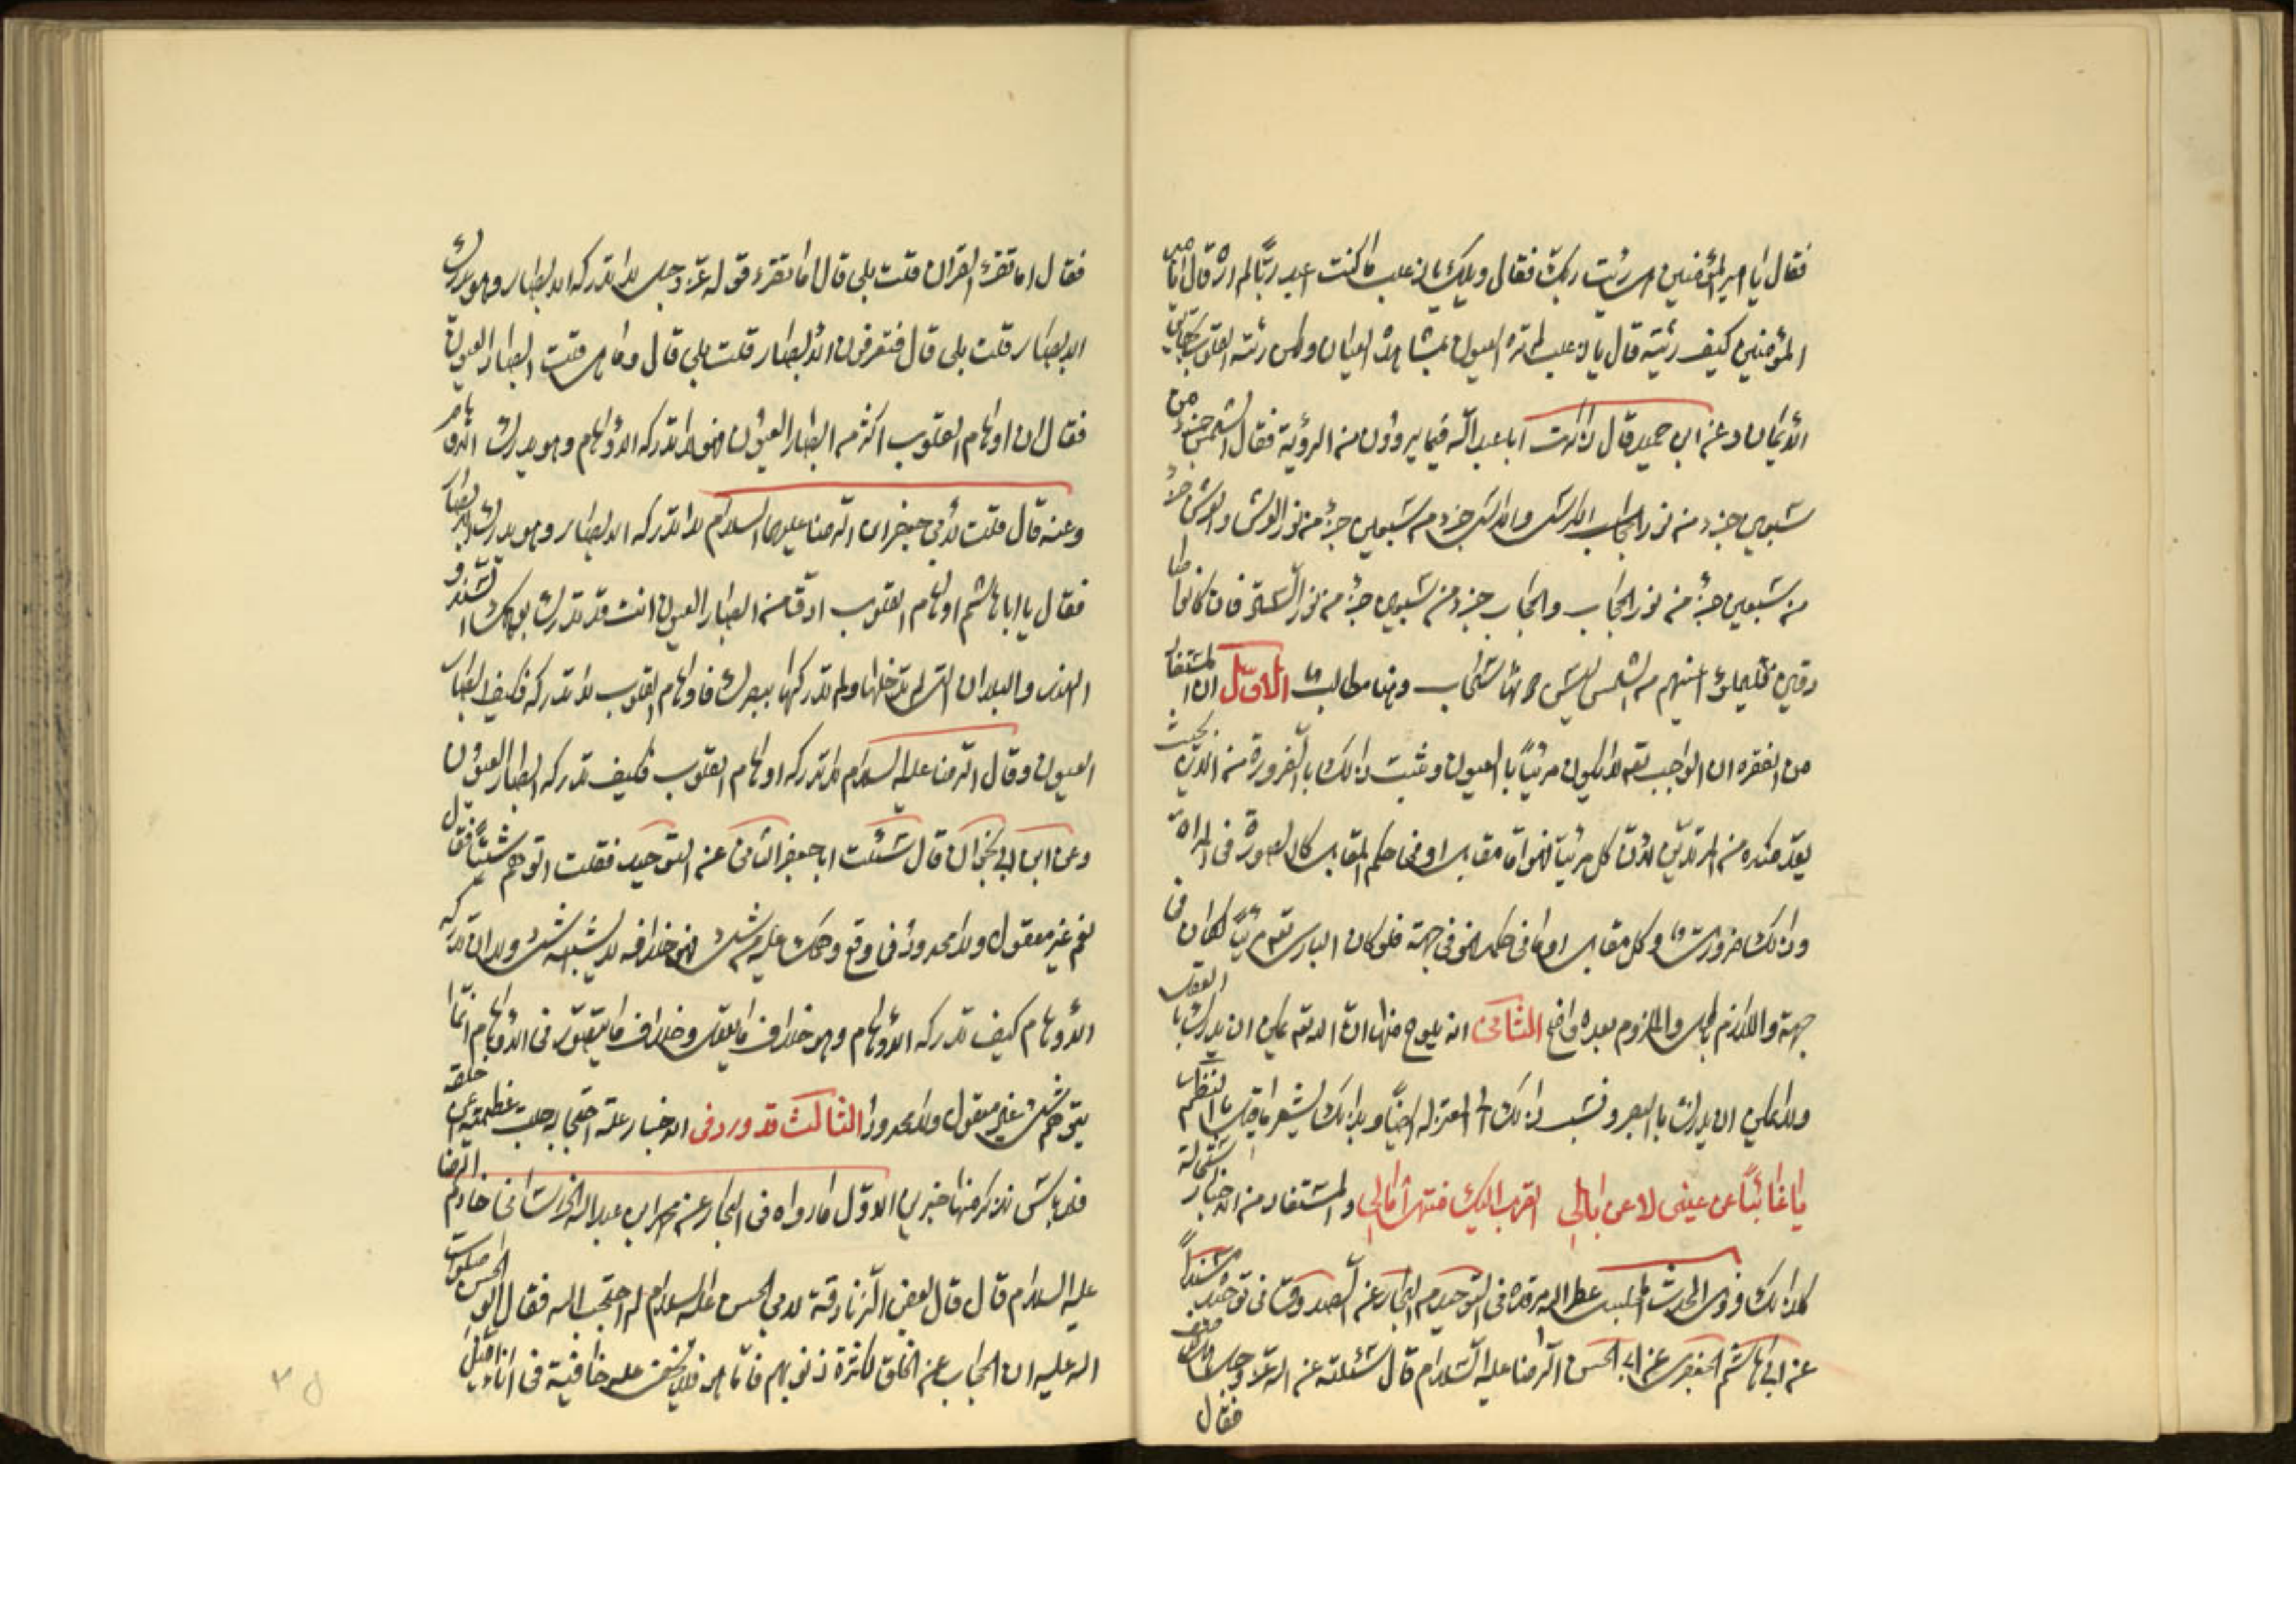 فقال يا امير المؤمنين هل رئيت ربك فقال ويلك يا ذعلب ما كنت اعبد ربّاً لم اره قال يا امير
المؤمنين كيف رئيته قال يا ذعلب لم تره العيون بمشاهدة العيان ولكن رئته القلوب بحقايق
الأيمان وعن ابن حميد قال ذاكرت ابا عبد الله فيما يروون من الرؤية فقال الشمس جزء من
سبعين جزء من نور الكرسي والكرسي جزء من سبعين جزء من نور العرش والعرش جزء
من سبعين جزء من نور الحجاب والحجاب جزء من سبعين جزء من نور الستر فان كانوا صا
دقين فليملؤا اعينهم من الشمس ليس دونها سحاب وهنا مطالب الاوّل ان المستفاد
من الفقره ان الواجب تعه لا يكون مرئياً بالعيون وثبت ذلك بالضرورة من الدين بحيث
يعدّ منكره من المرتدّين لأنّ كل مرئيّ فهو امّا مقابل او في حكم المقابل كالصورة في المراة
وذلك ضروري وكل مقابل او ما في حكمه فهو في جهة فلو كان الباري تعه مرئيّاً لكان في
جهة واللازم باطل والملزوم بعده واضح الثاني انه يلوح منها انّ الله تعه يمكن ان يدرك بالعقل
ولا يمكن ان يدرك بالبصر ونسب ذلك الى المعتزله ايضاً وبذلك يشعر ما قيل بالنظم
يا غائباً عن عيني لا عن بالي القرب اليك منتهى امالي والمستفاد من الاخبار استحالة
كلا ذلك فروى المحدث المجلسي عطر الله مرقده في التوحيد من البحار عن الصدوق في توحيده مسنداً
عن ابي هاشم الجعفري عن ابي الحسن الرضا عليه السّلام قال سئلته عن الله عزّ وجل هل يوصف
فقال
فقال اما تقرء القران قلت بلى قال اما تقرء قوله عزّ وجل لا تدركه الابصار وهو يدرك
الابصار قلت بلى قال فتعرفون الأبصار قلت بلى قال وما هي قلت ابصار العيون
فقال ان اوهام القلوب اكثر من ابصار العيون فهو لا تدركه الأوهام وهو يدرك الأوهام
وعنه قال قلت لأبي جعفر ابن الرضا عليهما السلام لا تدركه الابصار وهو يدرك الابصار
فقال يا ابا هاشم اوهام القلوب ادقّ من ابصار العيون انت قد تدرك بوهمك السند و
الهند والبلدان التي لم تدخلها ولم تدركها ببصرك فاوهام القلوب لا تدركه فكيف ابصار
العيون وقال الرضا عليه السلام لا تدركه اوهام القلوب فكيف تدركه ابصار العيون
وعن ابن ابي نجران قال سئلت ابا جعفر الثاني عن التوحيد فقلت اتوهم شيئاً فقال
نعم غير معقول ولا محدود فما وقع وهمك عليه من شيء فهو خلافه لا يشبهه شيء ولا تدركه
الأوهام كيف تدركه الأوهام وهو خلاف ما يعقل وخلاف ما يتصوّر في الأوهام انّما
يتوهم شيء غير معقول ولا محدود الثالث قد ورد في الاخبار علة احتجابه جلت عظمته عن خلقه
فلا باس نذكر منها خبرين الاوّل ما رواه في البحار عن محمد ابن عبد الله الخراساني خادم الرضا
عليه السلام قال قال بعض الزنادقة لابي الحسن عليه السلام لم احتجب الله فقال ابو الحسن صلوات
الله عليه ان الحجاب عن الخلق لكثرة ذنوبهم فامّا هو فلا يخفى عليه خافية في اناء الليل